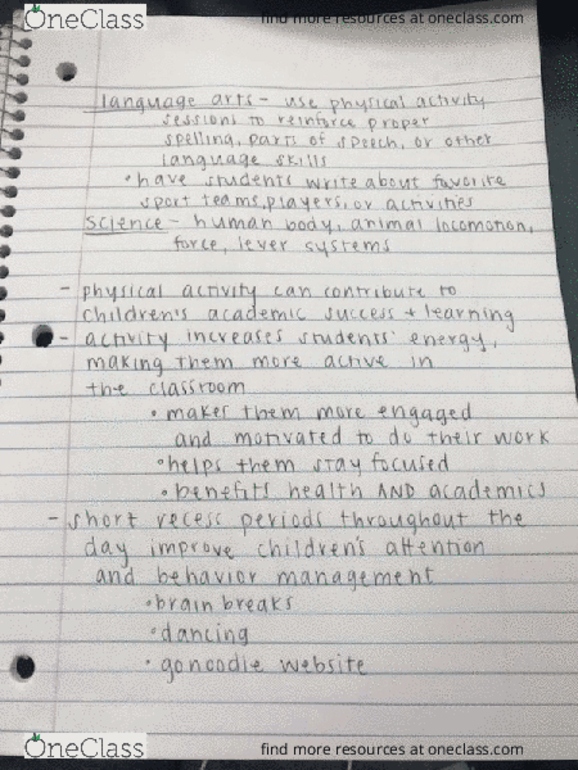 OneClass find more resources at oneclass.com
language arts - use physical activity
sessions to reinforce proper
spelling, parts of speech, or other
language skills
• have students write about favorite
sport teams, players, or activities
science - human body, animal locomotion,
force, lever systems
- physical activity can contribute to
children's academic success + learning
- activity increases students' energy,
making them more active in
the classroom
• makes them more engaged
and motivated to do their work
• helps them stay focused
• benefits health AND academics
- short recess periods throughout the
day improve children's attention
and behavior management
• brain breaks
• dancing
• gonoodle website
OneClass find more resources at oneclass.com